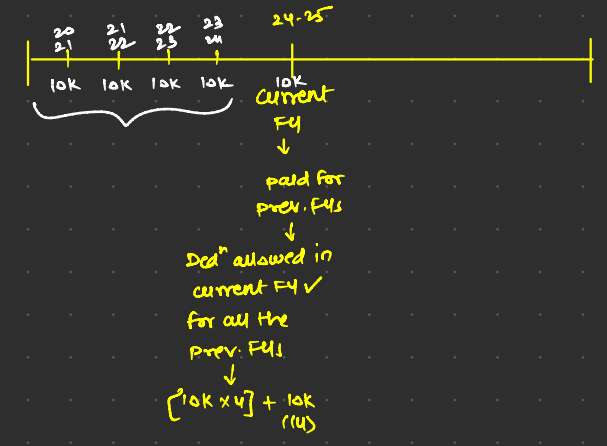 20 21 22 23 24-25
21 22 23 24
10K 10K 10K 10K 10K
current
FY
↓
paid for
prev. FYs
↓
Dedⁿ allowed in
current FY ✓
for all the
prev. FYs
↓
[10K x 4] + 10K